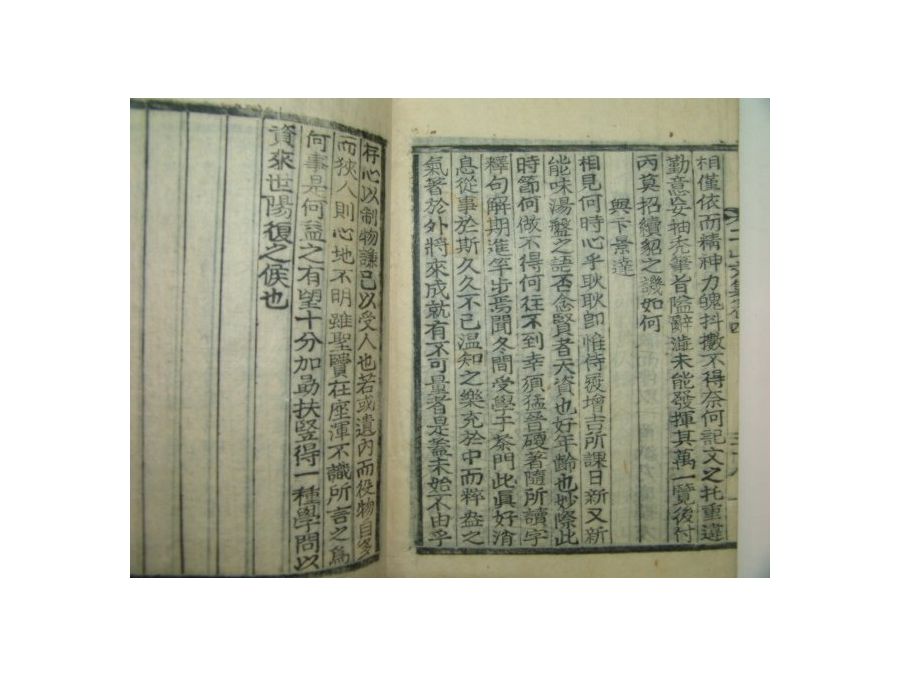 相僅依而精神力魄抖擻不得奈何記文之托重違
勤意妄抽禿筆旨隘辭澁未能發揮其萬一覽後付
丙莫招續貂之譏如何
與卞景達
相見何時心乎耿耿卽惟侍履增吉所課日新又新
能味湯盤之語否念賢者天資也好年齡也妙際此
時節何做不得何往不到幸須猛晉硬著隨所讀字
釋句解期進竿步焉聞冬間受學子茶門此眞好消
息從事於斯久久不已温知之樂充於中而粹盎之
氣著於外將來成就有不可量者是盖未始不由乎
存心以制物謙己以受人也若或遺内而役物自多
而狹人則心地不明雖聖賢在座渾不識所言之爲
何事是何益之有望十分加勗扶竪得一種學問以
資來世陽復之候也